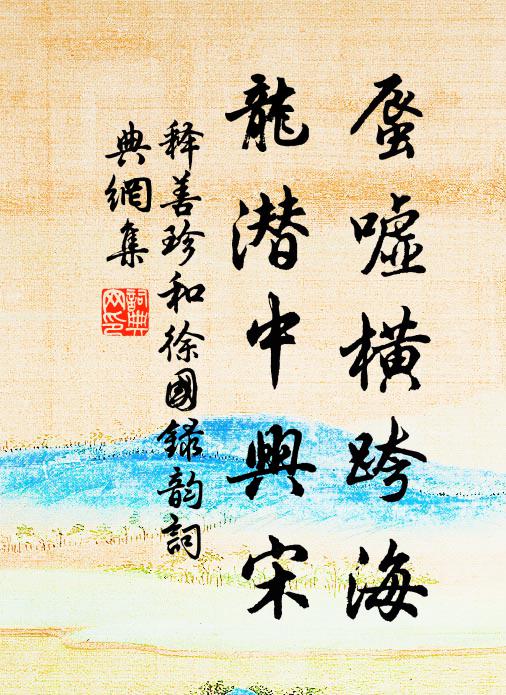 蜃嘘橫跨海
龍潛中興宋
释善珍和徐國録韵詞
典網集
詞典网印